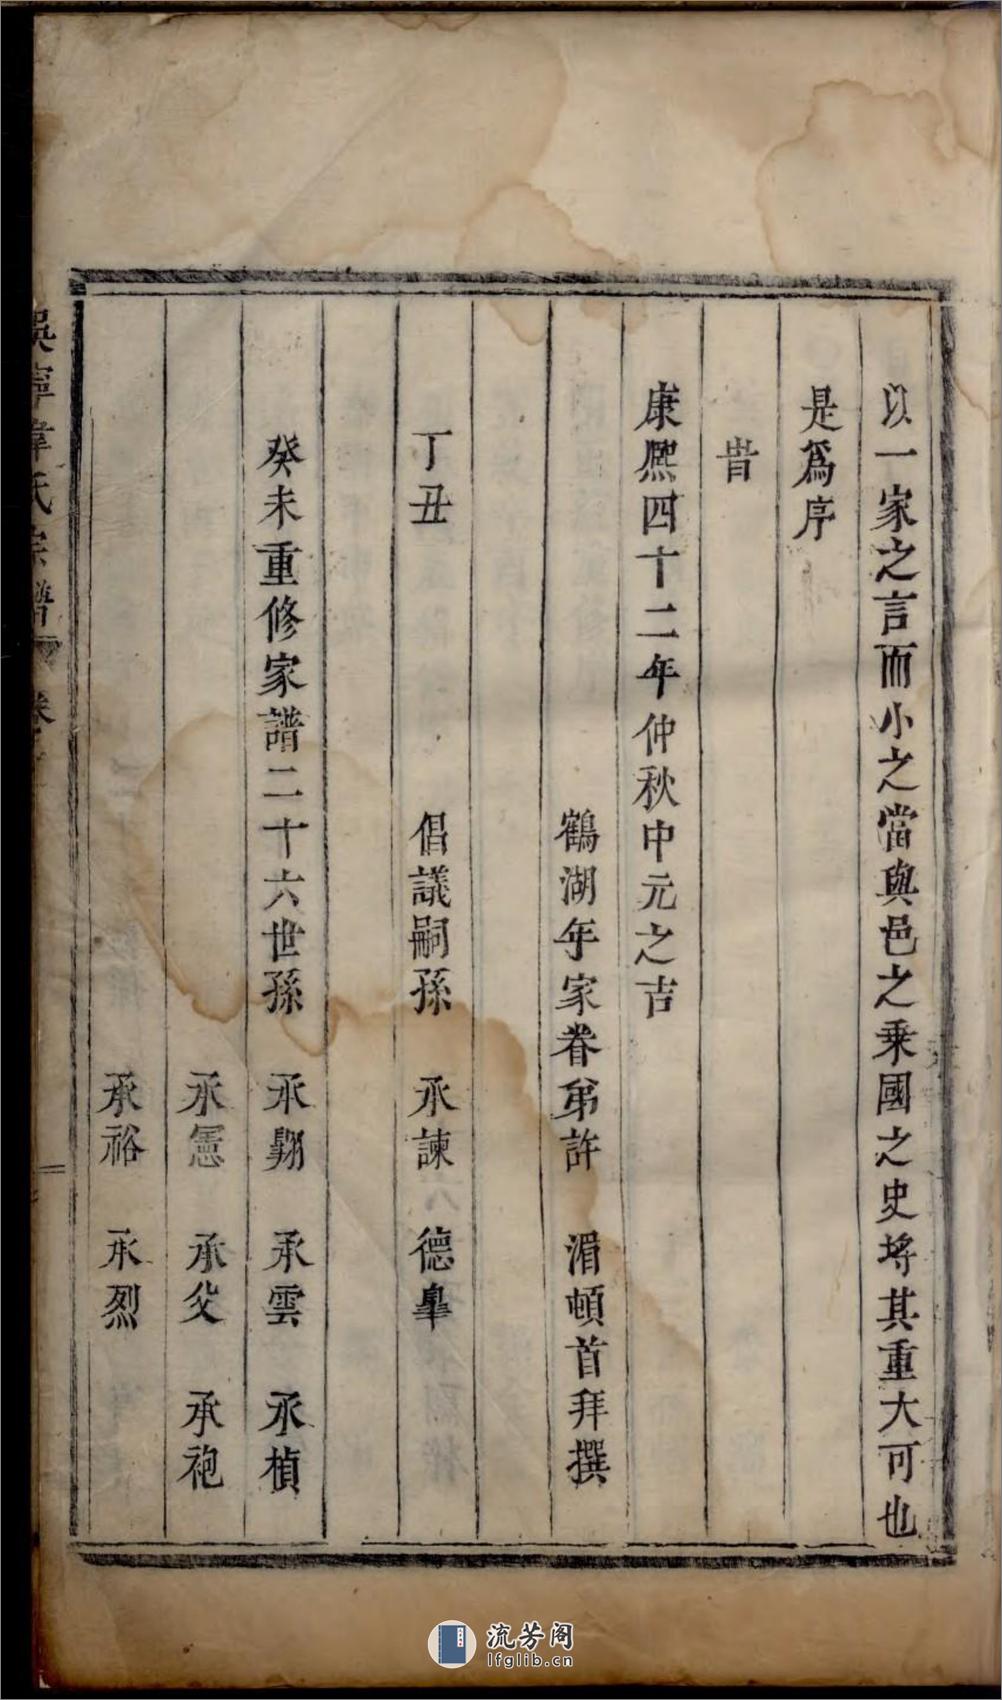 以一家之言而小之當與邑之乗國之史將其重大可也
是爲序
旹
康熈四十二年仲秋中元之吉
鶴湖年家眷弟許 湄頓首拜撰
丁丑 倡議嗣孫 承諫 德臯
癸未重修家譜二十六世孫 承翾 承雲 承楨
承憲 承父 承袍
承裕 承烈
吳寧韋氏宗譜 卷
流芳阁
lfglib.cn